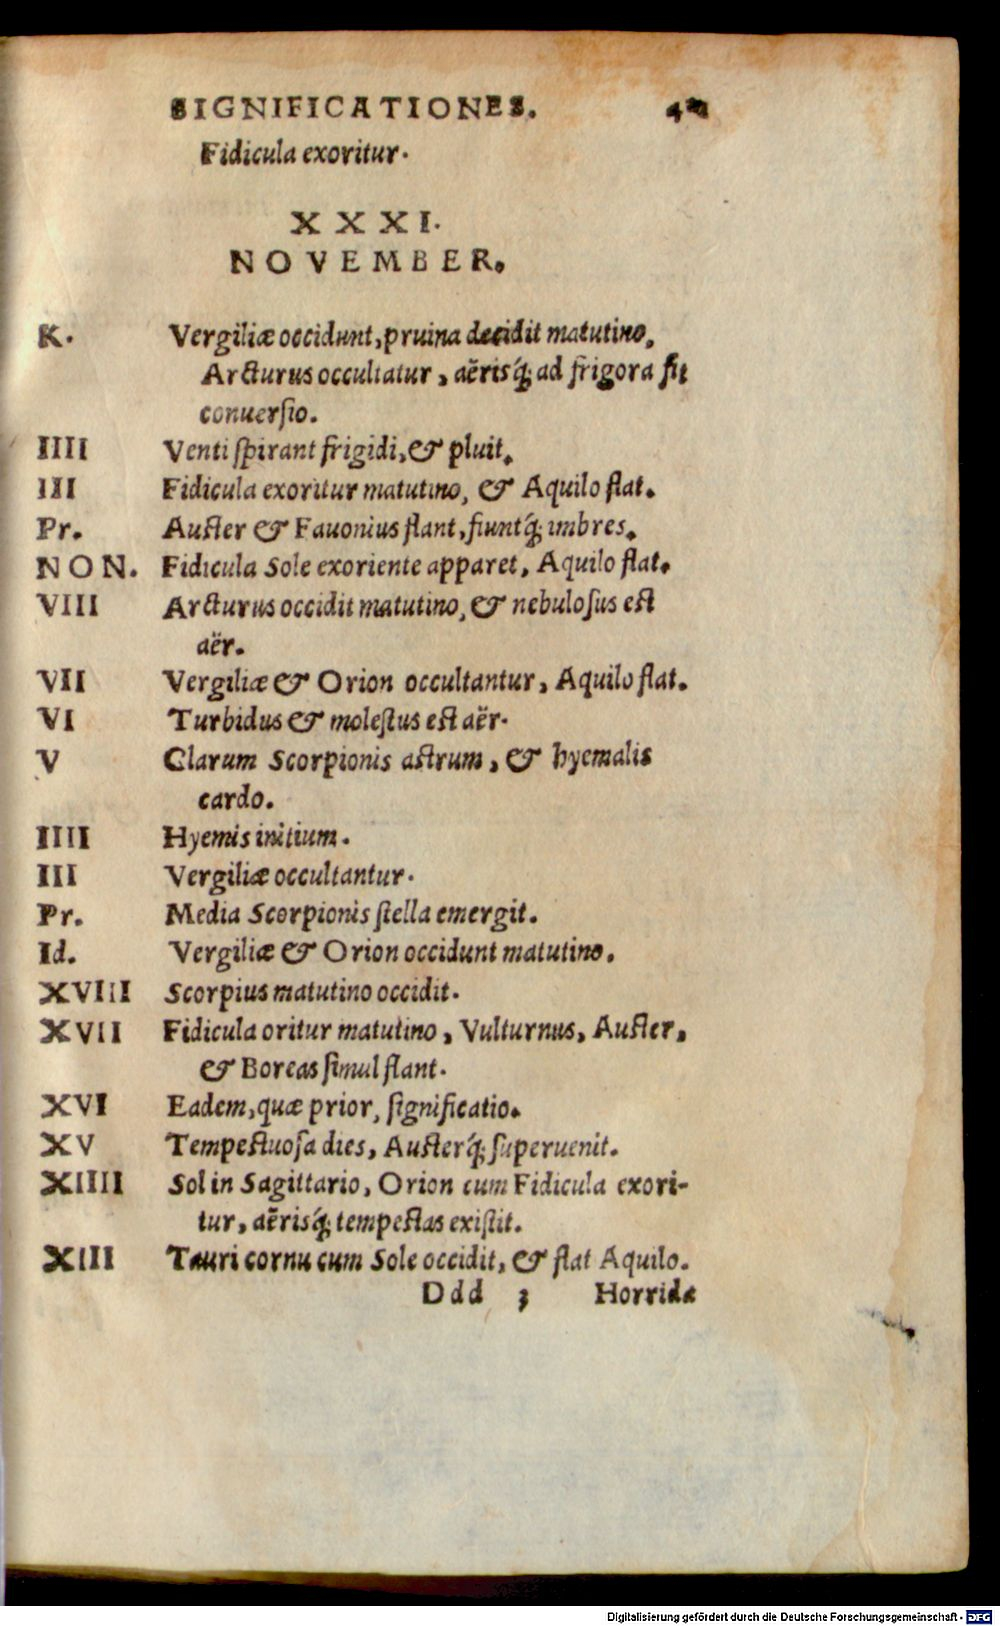 SIGNIFICATIONES.
Fidicula exoritur.
XXXI.
NOVEMBER.
K. Vergiliæ occidunt, pruina decidit matutino.
Arcturus occultatur, aërisq́; ad frigora fit
conuersio.
IIII Venti spirant frigidi, & pluit.
III Fidicula exoritur matutino, & Aquilo flat.
Pr. Auster & Fauonius flant, fiuntq́; imbres.
NON. Fidicula Sole exoriente apparet, Aquilo flat.
VIII Arcturus occidit matutino, & nebulosus est
aër.
VII Vergiliæ & Orion occultantur, Aquilo flat.
VI Turbidus & molestus est aër.
V Clarum Scorpionis astrum, & hyemalis
cardo.
IIII Hyemis initium.
III Vergiliæ occultantur.
Pr. Media Scorpionis stella emergit.
Id. Vergiliæ & Orion occidunt matutino.
XVIII Scorpius matutino occidit.
XVII Fidicula oritur matutino, Vulturnus, Auster,
& Boreas simul flant.
XVI Eadem, quæ prior, significatio.
XV Tempestuosa dies, Austerq́; superuenit.
XIIII Sol in Sagittario, Orion cum Fidicula exori-
tur, aërisq́; tempestas existit.
XIII Tauri cornu cum Sole occidit, & flat Aquilo.
Ddd 3 Horrida
Digitalisierung gefördert durch die Deutsche Forschungsgemeinschaft - DFG